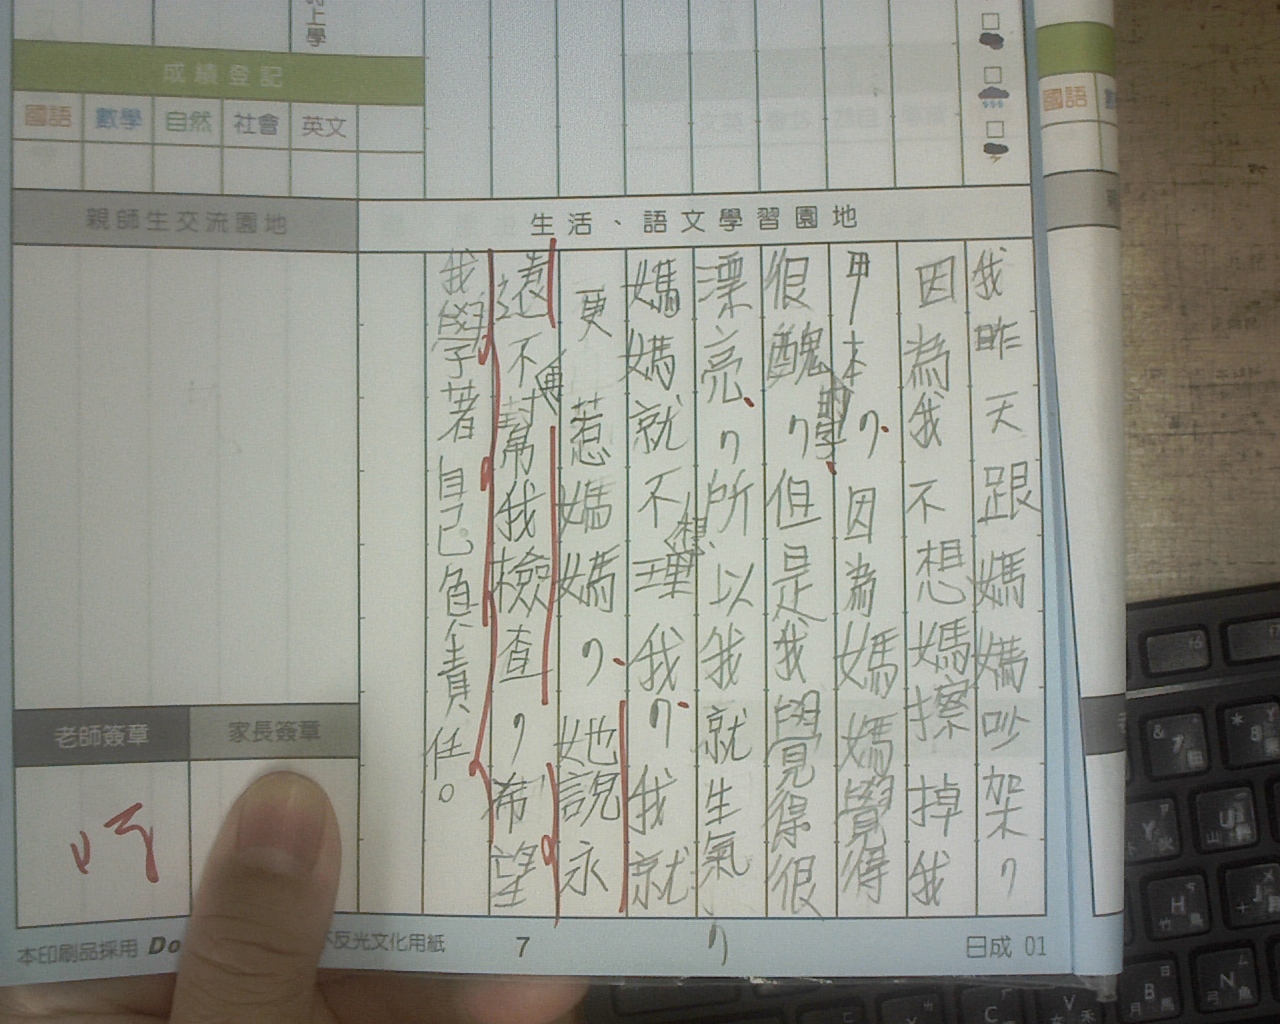 上學
成績登記
國語 數學 自然 社會 英文
國語
親師生交流園地
生活、語文學習園地
我昨天跟媽媽吵架，
因為我不想媽擦掉我
甲本的字，因為媽媽覺得
很醜，但是我覺得很
漂亮，所以我就生氣，
媽媽就不想理我，我就
更惹媽媽，她說永
遠不再幫我檢查，希望
我學著自己負責任。
老師簽章
家長簽章
本印刷品採用 Do
不反光文化用紙
7
日成 01